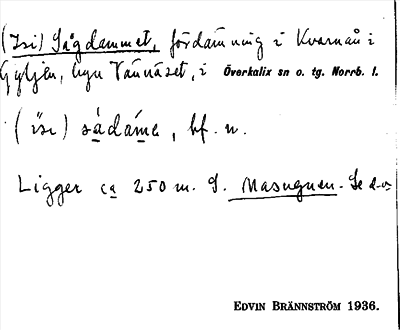 (Isi) Sågdammet, fördämning i Kvarnån i
Gyljen, hgn Vännäset, i Överkalix sn o. tg. Norrb. l.
(ísı) sådáme, bf. n.
Ligger ca 250 m. S. Masugnen. Se d-o
EDVIN BRÄNNSTRÖM 1936.